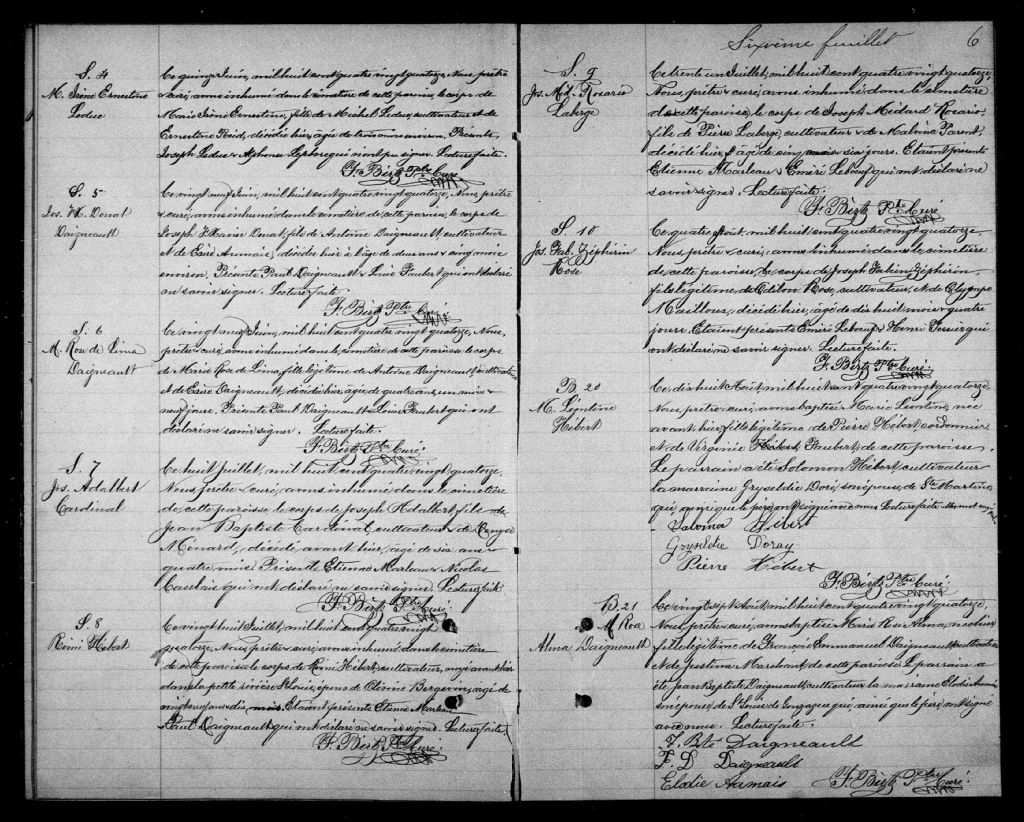 S. 4
M. Irène Ernestine
Leduc
Ce quinze Juin, mil huit cent quatre vingt quatorze, Nous, prêtre
& curé, avons inhumé dans le cimetière de cette paroisse, le corps de
Marie Irène Ernestine, fille de Michel Leduc, cultivateur et de
Ernestine Reid, décédée hier, agée de trois environ. Présents,
Joseph Leduc & Alphonse qui n'ont pu signer. Lecture faite.
F. Birtz Ptre Curé
S. 5
Jos. H. Donat
Daigneault
Ce vingt neuf Juin, mil huit cent quatre vingt quatorze, Nous, prêtre
& curé, avons inhumé dans le cimetière de cette paroisse, le corps de
Joseph Donat, fils de Antoine Daigneault, cultivateur
et de Esire Aumais, décédé hier à l'âge de deux ans & cinq mois
environ. Présents Paul Daigneault & Louis Faubert qui ont déclaré
ne savoir signer. Lecture faite.
F. Birtz Ptre Curé
S. 6
M. Rose de Lima
Daigneault
Ce vingt neuf Juin, mil huit cent quatre vingt quatorze, Nous,
prêtre & curé, avons inhumé dans le cimetière de cette paroisse le corps
de Marie Rose de Lima, fille légitime de Antoine Daigneault, cultivateur
et de Esire Daigneault, décédée hier, agée de quatre ans, un mois &
neuf jours. Présents Paul Daigneault & Louis Faubert qui ont
déclaré ne savoir signer. Lecture faite.
F. Birtz Ptre Curé
S. 7
Jos. Adalbert
Cardinal
Ce huit Juillet, mil huit cent quatre vingt quatorze.
Nous, prêtre & curé, avons inhumé dans le cimetière
de cette paroisse, le corps de Joseph Adalbert, fils de
Jean Baptiste Cardinal, cultivateur & de
Ménard, décédé, avant hier, agé de six ans
quatre mois. Présents Etienne Marleau & Nicolas
qui ont déclaré ne savoir signer. Lecture faite
F. Birtz Ptre Curé
S. 8
Rémi Hébert
Ce vingt huit Juillet, mil huit cent quatre vingt
quatorze, Nous, prêtre & curé, avons inhumé dans le cimetière
de cette paroisse le corps de Rémi Hébert, cultivateur, noyé avant hier
dans la petite rivière St Louis, époux de Célénire Bergevin, agé de
mois. Etaient présents Etienne Marleau
& Paul Daigneault qui ont déclaré ne savoir signer. Lecture faite.
F. Birtz Ptre Curé
Sixième feuillet
6
S. 9
Jos. Méd. Rosario
Laberge
Ce trente un Juillet, mil huit cent quatre vingt quatorze,
Nous, prêtre & curé, avons inhumé dans le cimetière
de cette paroisse, le corps de Joseph Médard Rosario,
fils de Pierre Laberge, cultivateur & de Malvina Parent,
décédé hier, agé de cinq mois six jours. Etaient présents
Etienne Marleau & Eméri Leboeuf qui ont déclaré ne
savoir signer. Lecture faite.
F. Birtz Ptre Curé
S. 10
Jos. Fab. Zéphirin
Rose
Ce quatre Août, mil huit cent quatre vingt quatorze.
Nous, prêtre & curé, avons inhumé dans le cimetière
de cette paroisse, le corps de Joseph Fabien Zéphirin,
fils légitime de Odilon Rose, cultivateur, et de Olympe
Mailloux, décédé hier, agé de dix huit mois quatre
jours. Etaient présents Eméri Leboeuf & Henri Tessier qui
ont déclaré ne savoir signer. Lecture faite.
F. Birtz Ptre Curé
B. 20
M. Léontine
Hébert
Ce dix huit Août, mil huit cent quatre vingt quatorze.
Nous, prêtre & curé, avons baptisé Marie Léontine, née
avant hier, fille légitime de Pierre Hébert, cordonnier
et de Virginie Faubert, de cette paroisse.
Le parrain a été Solomon Hébert, cultivateur
la marraine Gryseldie Doré, son épouse, de Ste Martine,
qui, ainsi que le père, ont signé avec nous. Lecture faite.
Saloma Hébert
Gryseldie Doray
Pierre Hébert
F. Birtz Ptre Curé
B. 21
M. Rosa
Alma Daigneault
Ce vingt sept Août, mil huit cent quatre vingt quatorze,
Nous, prêtre & curé, avons baptisé Marie Rose Alma, née hier
fille légitime de François Emmanuel Daigneault, cultivateur
et de Justine Marchand de cette paroisse. Le parrain a
été Jean Baptiste Daigneault, cultivateur la marraine Elodie Aumais
son épouse de St Louis de Gonzague qui, ainsi que le père, ont signé
avec nous. Lecture faite.
J. Bte Daigneault
F. D Daigneault
Elodie Aumais
F. Birtz Ptre Curé